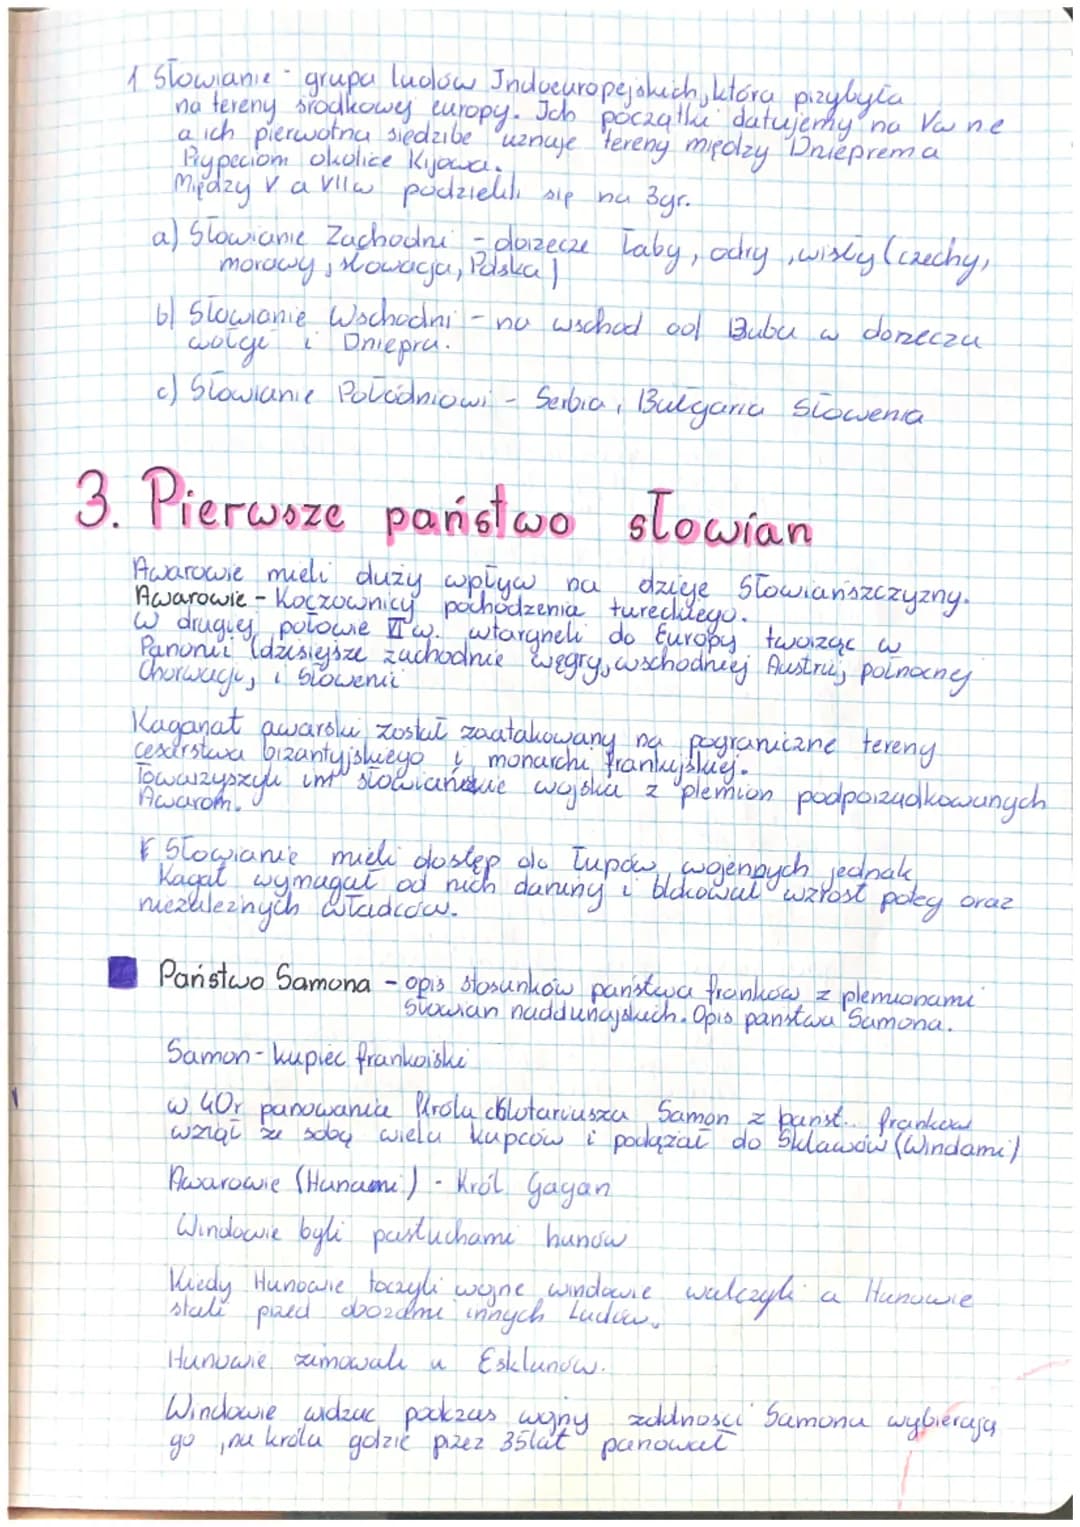 1 Słowianie - grupa ludów Indoeuropejskich, która przybyła
na tereny środkowej europy. Ich początki datujemy na V w n.e
a ich pierwotną siedzibe uznaje tereny między Dnieprem a
Prypeciom okolice Kijowa.
Między V a VII w podzielili się na 3gr.
a) Słowianie Zachodni - dorzecze Łaby, odry, wisły (czechy,
morawy, słowacja, Polska)
b) Słowianie Wschodni - na wschod od Bubu w dorzeczu
wołgi i Dniepru.
c) Słowianie Południowi - Serbia, Bułgaria Słowenia
3. Pierwsze państwo słowian
Awarowie mieli duży wpływ na dzieje Słowiańszczyzny.
Awarowie - Koczownicy pochodzenia tureckiego.
W drugiej połowie VI w. wtargneli do Europy tworząc w
Panonii (dzisiejsze zachodnie węgry, wschodniej Austrii, północnej
Chorwacji, i Słowenii
Kaganat awarski został zaatakowany na pograniczne tereny
cesarstwa bizantyjskiego i monarchi frankijskiej.
Towarzyszyli im słowiańskie wojska z plemion podporządkowanych
Awarom.
Słowianie mieli dostęp do łupów wojennych jednak
Kagat wymagał od nich daniny i blokował wzrost potęg oraz
niezależnych władców.
Państwo Samona - opis stosunków państwa franków z plemionami
Słowian naddunajskich. Opis państwa Samona.
Samon - kupiec frankoiski
w 40r panowania Króla chlotariusza Samon z państ.. franków
wziął ze sobą wielu kupców i podążał do Sklawów (Windami)
Awarowie (Hunami) - Król Gagan
Windowie byli pastuchami hunów
Kiedy Hunowie toczyli wojne windowie walczyli a Hunowie
stali przed obozami innych Ludów.
Hunowie zimowali u Esklunów.
Windowie widząc podczas wojny zdolności Samona wybierają
go, na króla gdzie przez 35lat panował